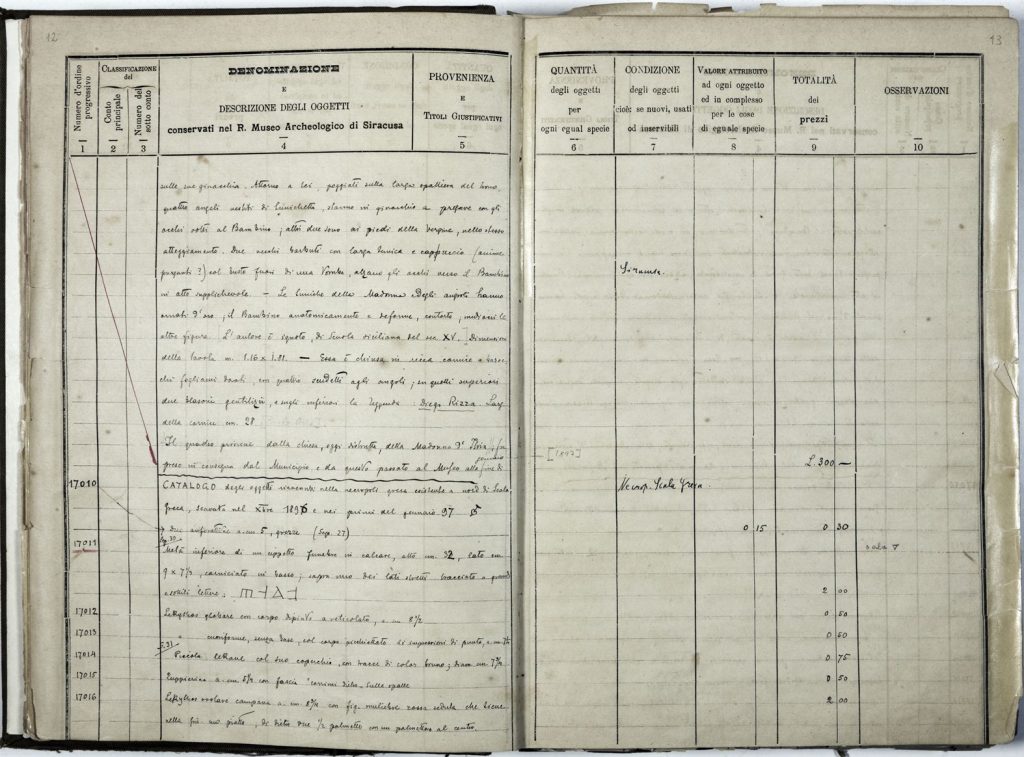 12
13
Numero d'ordine progressivo
CLASSIFICAZIONE del
Conto principale
Numero del sotto conto
DENOMINAZIONE
E
DESCRIZIONE DEGLI OGGETTI
conservati nel R. Museo Archeologico di Siracusa
PROVENIENZA
E
TITOLI GIUSTIFICATIVI
QUANTITÀ
degli oggetti
per
ogni egual specie
CONDIZIONE
degli oggetti
cioè: se nuovi, usati
od inservibili
VALORE ATTRIBUITO
ad ogni oggetto
ed in complesso
per le cose
di eguale specie
TOTALITÀ
dei
prezzi
OSSERVAZIONI
1 2 3 4 5 6 7 8 9 10
sulle sue ginocchia. Attorno a lei, poggiati sulla larga spalliera del trono,
quattro angeli vestiti di tunichetta, stanno in ginocchio a pregare con gli
occhi volti al Bambino; altri due sono ai piedi della Vergine, nello stesso
atteggiamento. Due vecchi barbuti con larga tunica e cappuccio (anime
purganti?) col busto fuori di una tomba, alzano gli occhi verso il Bambino
in atto supplichevole. — Le tuniche della Madonna e degli angoli hanno
ornati d'oro; il Bambino anatomicamente è deforme, contorto,
altre figure. L'autore è ignoto, di scuola siciliana del sec. XV. Dimensioni
della tavola m. 1.16 x 1.81. — Essa è chiusa in ricca cornice a
fogliami dorati, con quattro scudetti agli angoli; in quelli superiori
due blasoni gentilizii, e negli inferiori la leggenda: Diego Rizza. Larg.
della cornice cm. 28
Il quadro proviene dalla chiesa, oggi distrutta, della Madonna d'Itria; fu
preso in consegna dal Municipio e da questo passato al Museo alla fine di
gennaio
[1897]
Siracusa.
L. 300 —
17010
CATALOGO degli oggetti rinvenuti nella necropoli greca esistente a nord di Scala
Greca, scavata nel Xbre 1896 e nei primi del gennaio 97
Necrop. Scala Greca.
Due anforette a cm 5, grezze (Sep. 27)
0 15 0 30
17011
Metà inferiore di un cippetto funebre in calcare, alto cm. 32, lato cm
9 x 7½, corniciato in basso; sopra uno dei lati stretti tracciato a grandi
e sottili lettere:
2 00
17012
Lekythos globare con corpo dipinto a reticolato, a cm 8½
0 50
17013
" cuoriforme, senza base, col corpo picchiettato
0 50
17014
Piccola lekane col suo coperchio, con tracce di color bruno; diam. cm 7½
0 75
17015
con fascia sulle spalle
0 50
17016
Lekythos ovolare campana a cm. 8½ con fig. muliebre rossa seduta che tiene
2 00
nella un piatto, di dietro due ½ palmette con un palmettone al centro.